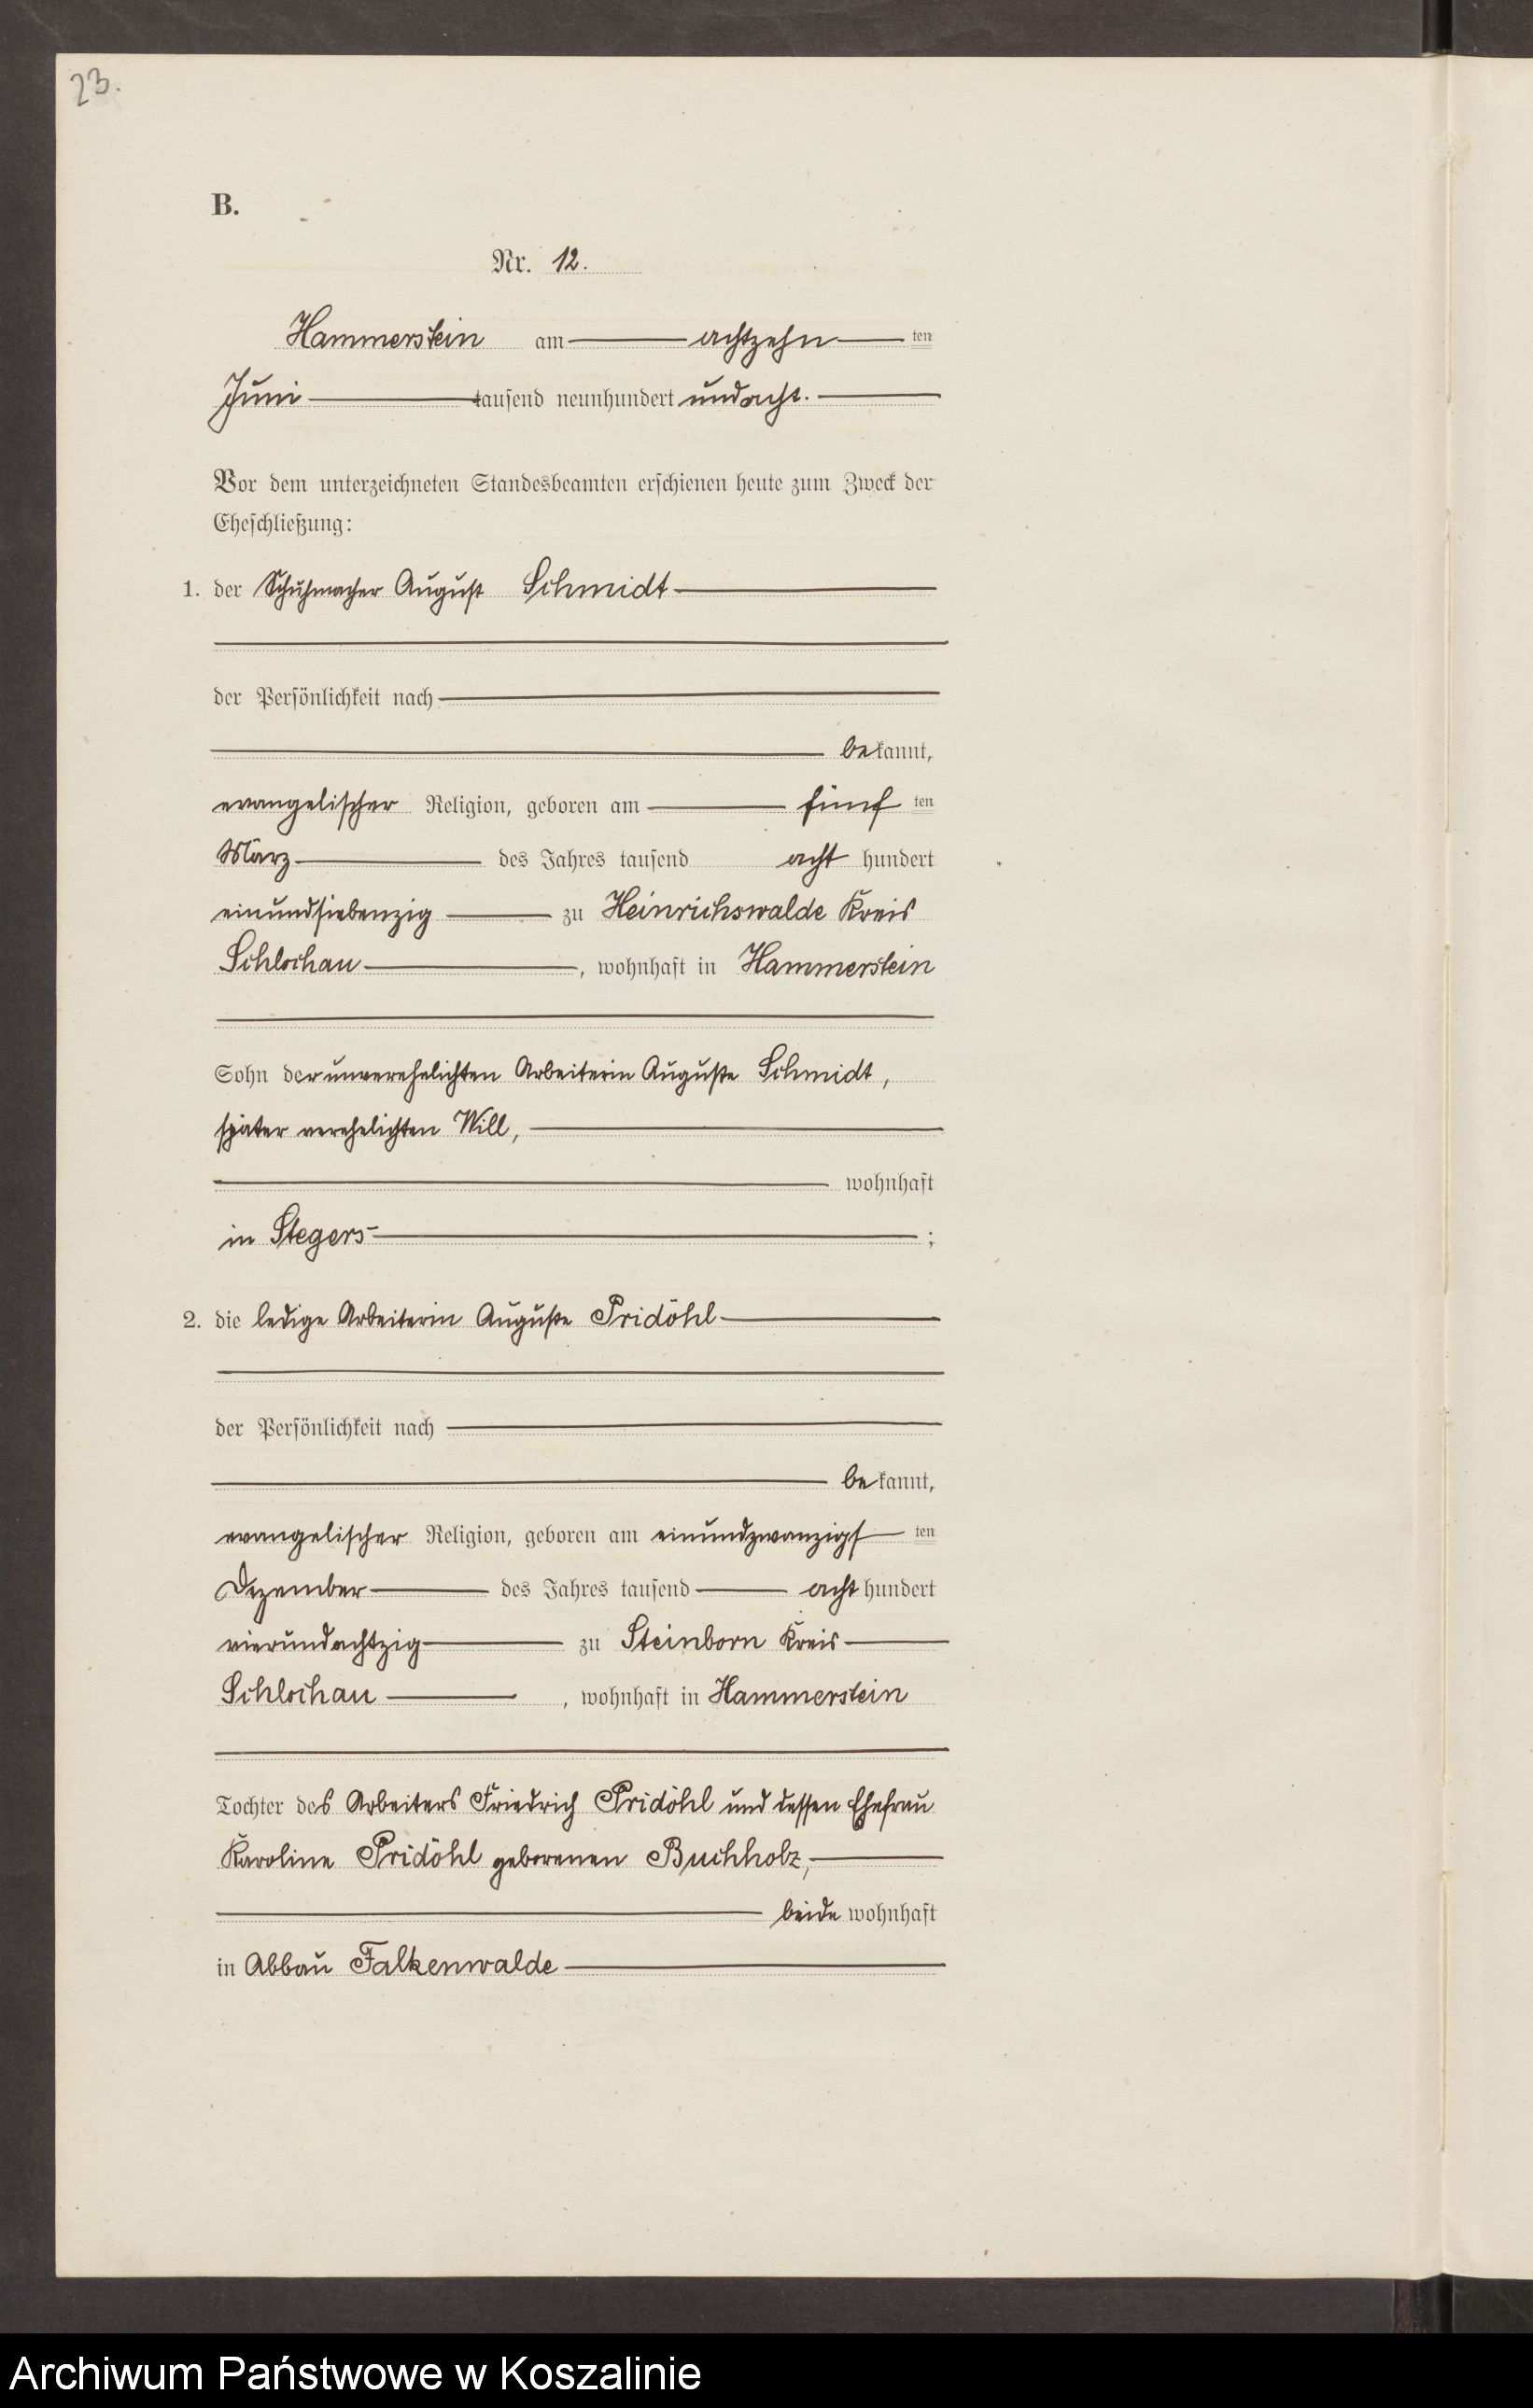 23.
B.
Nr. 12.
Hammerstein am achtzehn ten
Juni tausend neunhundert undacht.
Vor dem unterzeichneten Standesbeamten erschienen heute zum Zweck der
Eheschließung:
1. der Schuhmacher August Schmidt
der Persönlichkeit nach
bekannt,
evangelischer Religion, geboren am fünf ten
März des Jahres tausend acht hundert
einundsiebenzig zu Heinrichswalde Kreis
Schlochau, wohnhaft in Hammerstein
Sohn der unverehelichten Arbeiterin Auguste Schmidt,
später verehelichten Will,
wohnhaft
in Stegers ;
2. die ledige Arbeiterin Auguste Pridöhl
der Persönlichkeit nach
bekannt,
evangelischer Religion, geboren am einundzwanzigs ten
Dezember des Jahres tausend acht hundert
vierundachtzig zu Steinborn Kreis
Schlochau , wohnhaft in Hammerstein
Tochter des Arbeiters Friedrich Pridöhl und dessen Ehefrau
Karoline Pridöhl geborenen Buchholz,
beide wohnhaft
in Abbau Falkenwalde
Archiwum Państwowe w Koszalinie